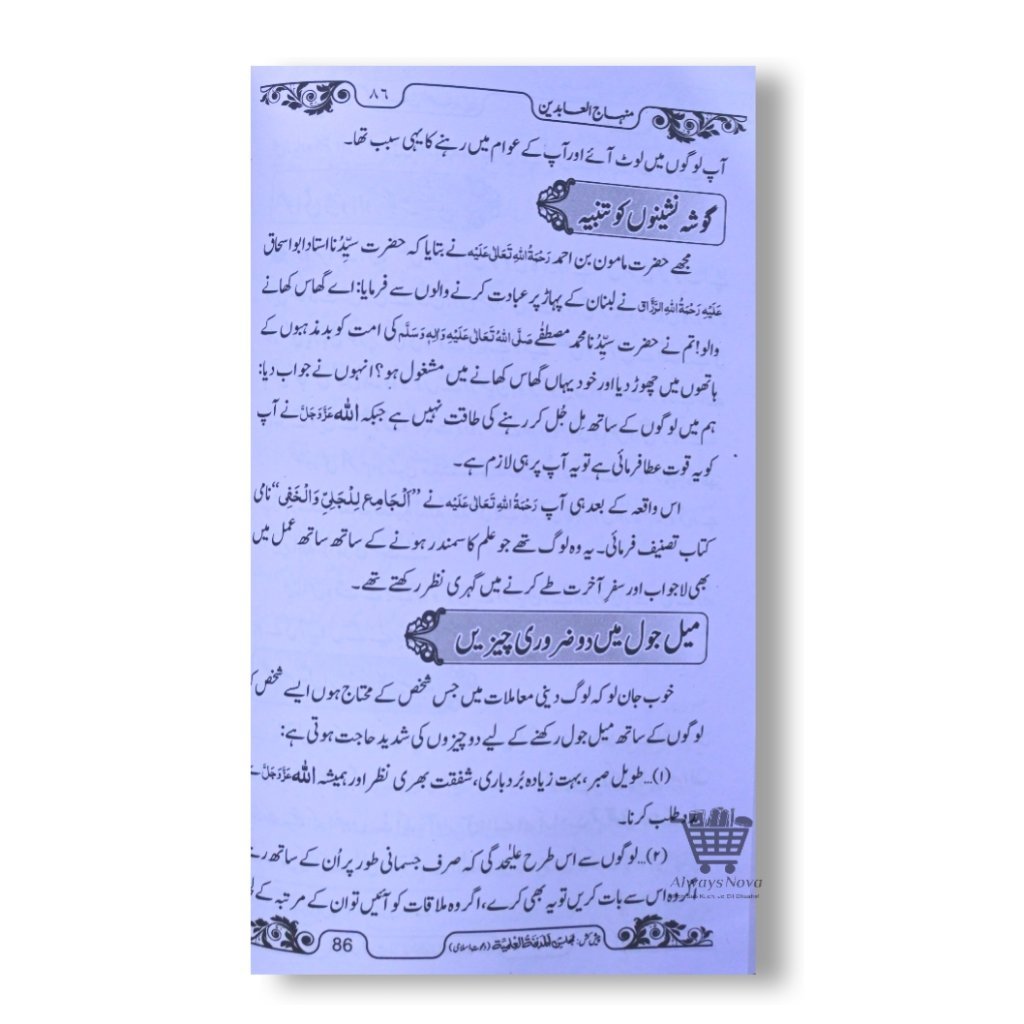 منہاج العابدین
۸٦
آپ لوگوں میں لوٹ آئے اور آپ کے عوام میں رہنے کا یہی سبب تھا۔
گوشہ نشینوں کو تنبیہ
مجھے حضرت مامون بن احمد رَحْمَةُ اللهِ تَعَالٰی عَلَیْه نے بتایا کہ حضرت سیِّدُنا استاد ابو اسحاق
عَلَیْهِ رَحْمَةُ اللهِ الرَّزَّاق نے لبنان کے پہاڑ پر عبادت کرنے والوں سے فرمایا: اے گھاس کھانے
والو! تم نے حضرت سیِّدُنا محمد مصطفٰے صَلَّی اللهُ تَعَالٰی عَلَیْهِ وَاٰلِهٖ وَسَلَّم کی امت کو بدمذہبوں کے
ہاتھوں میں چھوڑ دیا اور خود یہاں گھاس کھانے میں مشغول ہو؟ انہوں نے جواب دیا:
ہم میں لوگوں کے ساتھ مِل جُل کر رہنے کی طاقت نہیں ہے جبکہ الله عَزَّوَجَلَّ نے آپ
کو یہ قوت عطا فرمائی ہے تو یہ آپ پر ہی لازم ہے۔
اس واقعہ کے بعد ہی آپ رَحْمَةُ اللهِ تَعَالٰی عَلَیْه نے ”اَلْجَامِع لِلْجَلِیِّ وَالْخَفِی“ نامی
کتاب تصنیف فرمائی۔ یہ وہ لوگ تھے جو علم کا سمندر ہونے کے ساتھ ساتھ عمل میں
بھی لاجواب اور سفرِ آخرت طے کرنے میں گہری نظر رکھتے تھے۔
میل جول میں دو ضروری چیزیں
خوب جان لو کہ لوگ دینی معاملات میں جس شخص کے محتاج ہوں ایسے شخص
لوگوں کے ساتھ میل جول رکھنے کے لیے دو چیزوں کی شدید حاجت ہوتی ہے:
(۱)...طویل صبر، بہت زیادہ بُردباری، شفقت بھری نظر اور ہمیشہ الله عَزَّوَجَلَّ
مدد طلب کرنا۔
(۲)...لوگوں سے اس طرح علیٰحدگی کہ صرف جسمانی طور پر اُن کے ساتھ
اگر وہ اس سے بات کریں تو یہ بھی کرے، اگر وہ ملاقات کو آئیں تو ان کے مرتبہ کے
Always Nova
پیش کش: مجلس المدینة العلمیة (دعوتِ اسلامی)
86